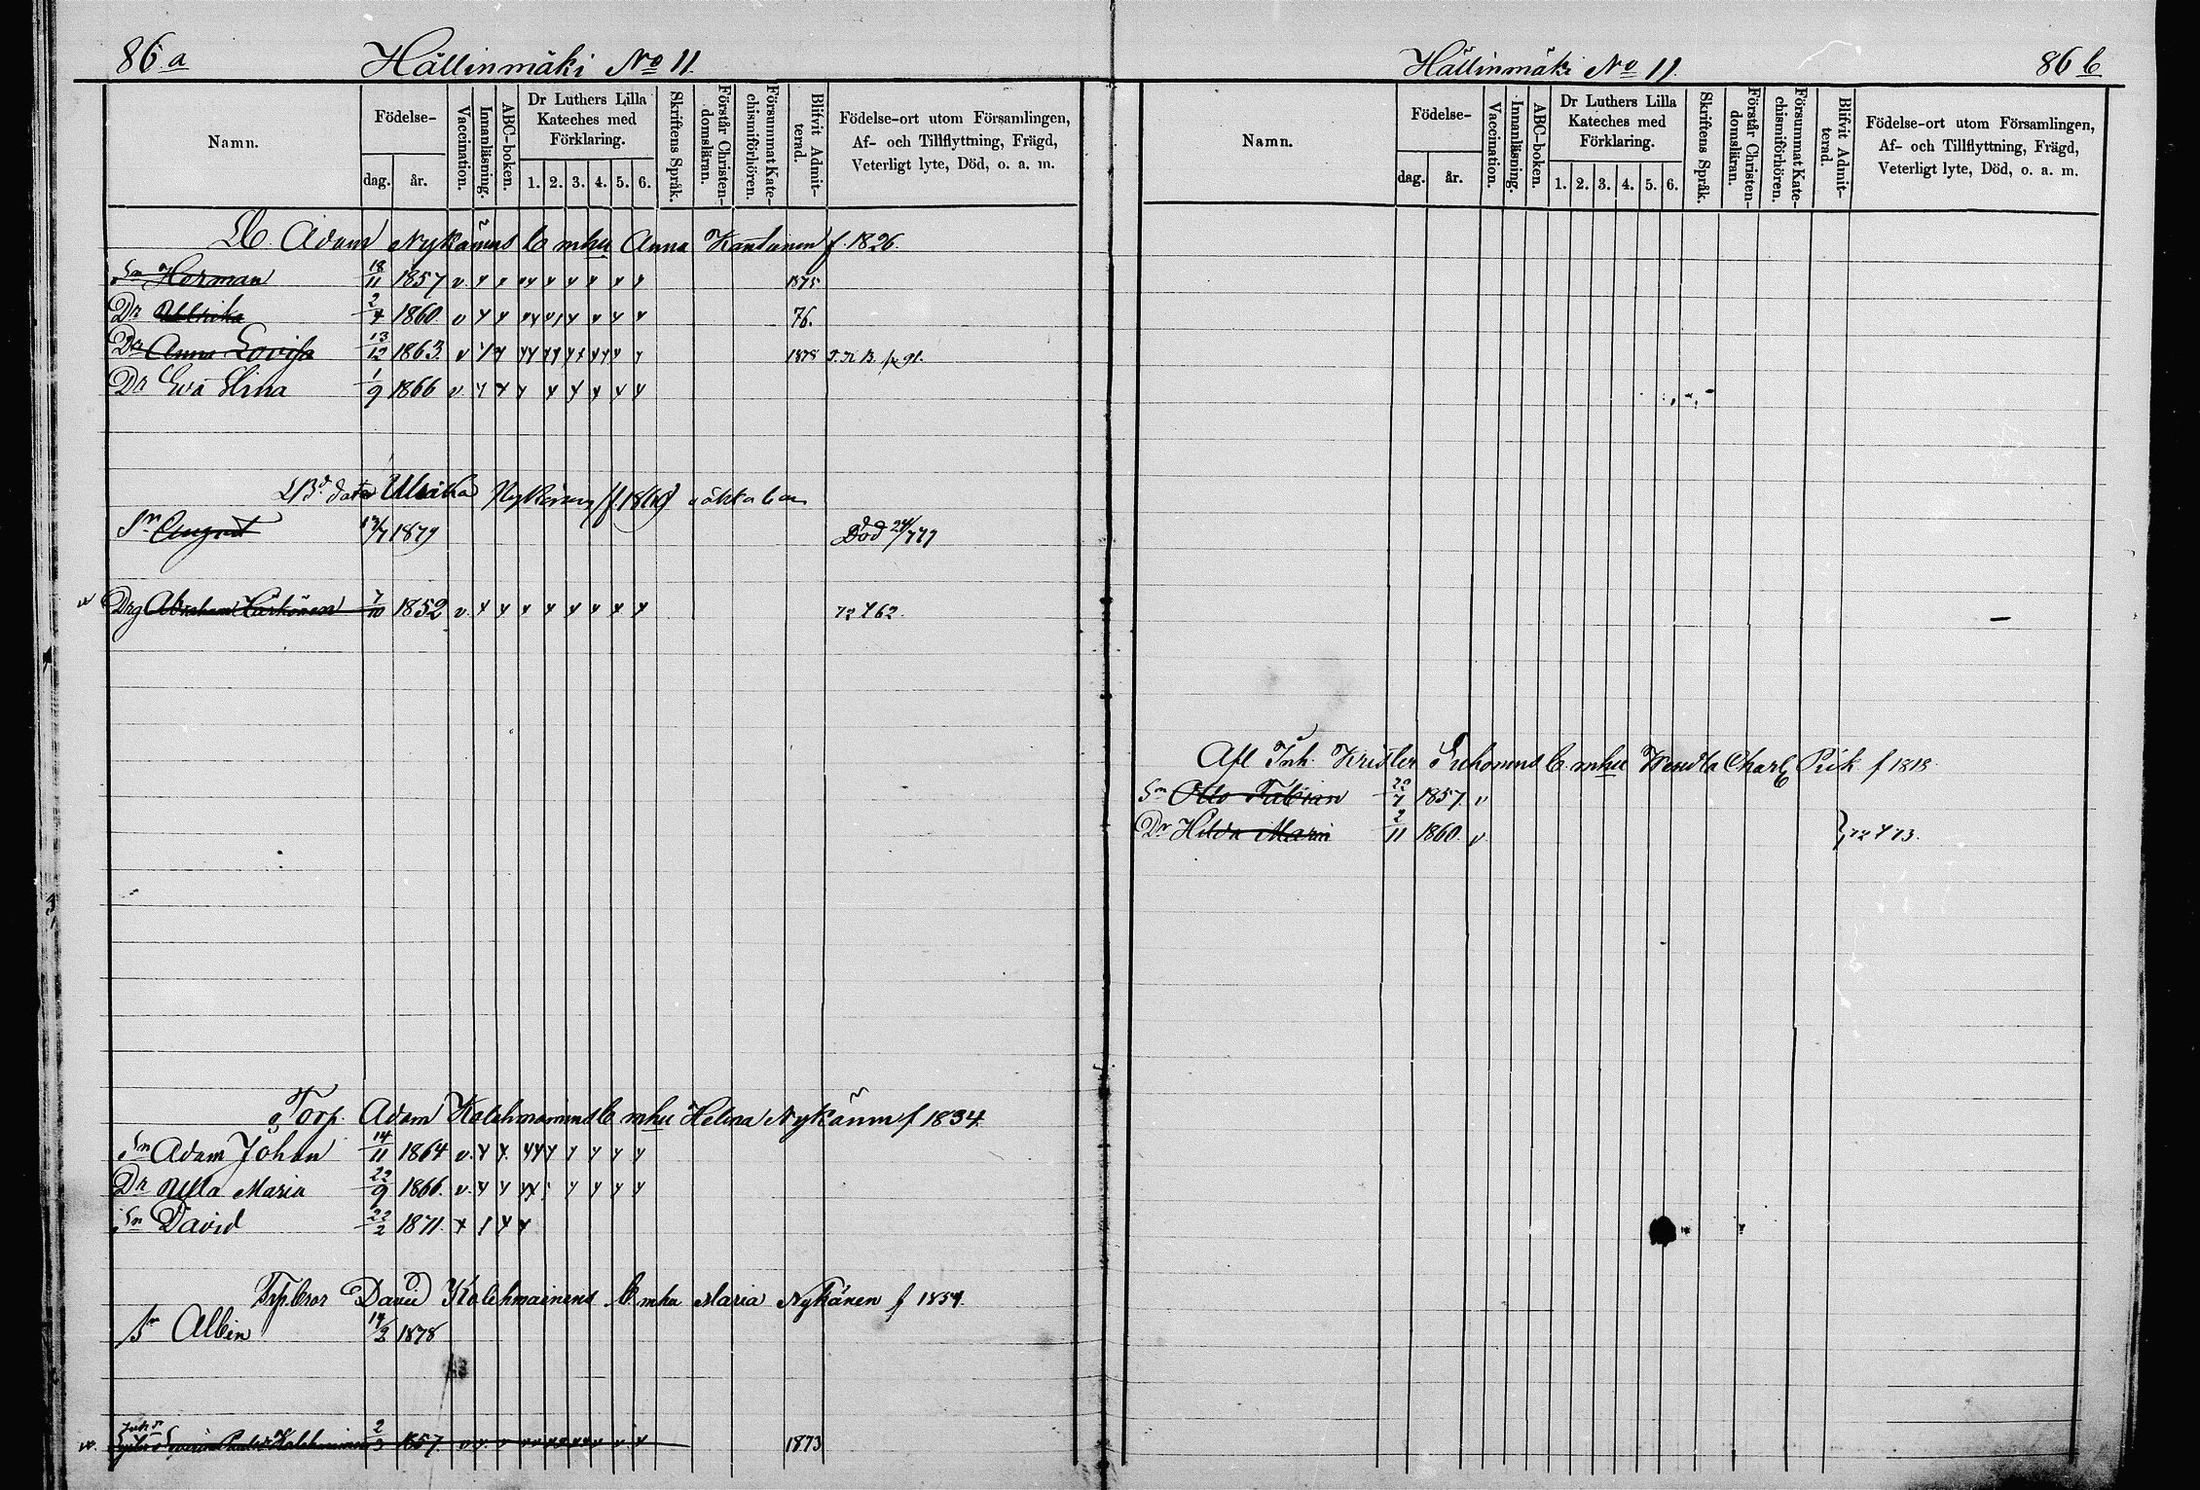 86 a Hällinmäki No 11.
Namn. Födelse- dag. år. Vaccination. Innanläsning. ABC-boken. Dr Luthers Lilla Kateches med Förklaring. 1. 2. 3. 4. 5. 6. Skriftens Språk. Förstår Christen-domsläran. Försummat Kate-chismiförhören. Blifvit Admit-terad. Födelse-ort utom Församlingen, Af- och Tillflyttning, Frägd, Veterligt lyte, Död, o. a. m.
Adam Nykänens b mhu Anna f. 1826.
Sn Herman 18/11 1857 v 1875
Dr Ulrika 2/4 1860. v 76.
Dr Anna Lovisa 13/12 1863. v 1878
Dr Eva Stina 1/9 1866 v.
dotr Ulrika
Sn August 13/7 1879 Död 24/7 79
Drg Abraham Härkönen 7/10 1852 v. 72 62.
Torp. Adam Kolehmainens b mhu Helena Nykänen f 1834.
Sn Adam Johan 14/11 1864 v.
Dr Ulla Maria 22/9 1866. v.
Sn David 22/2 1871.
Trp bror David Kolehmainens b. mhu Maria Nykänen f 1859.
Sn Albin 19/2 1878
Kolehmainen 2/3 1857. 1873
Hällinmäki No 11. 86 b
Namn. Födelse- dag. år. Vaccination. Innanläsning. ABC-boken. Dr Luthers Lilla Kateches med Förklaring. 1. 2. 3. 4. 5. 6. Skriftens Språk. Förstår Christen-domsläran. Försummat Kate-chismiförhören. Blifvit Admit-terad. Födelse-ort utom Församlingen, Af- och Tillflyttning, Frägd, Veterligt lyte, Död, o. a. m.
Afl Inh. Krister b. mhu Wendla Charl Pick f 1818
Sn Otto Fabian 22/7 1857. v
Dr Hilda Maria 2/11 1860. v. 72 73.